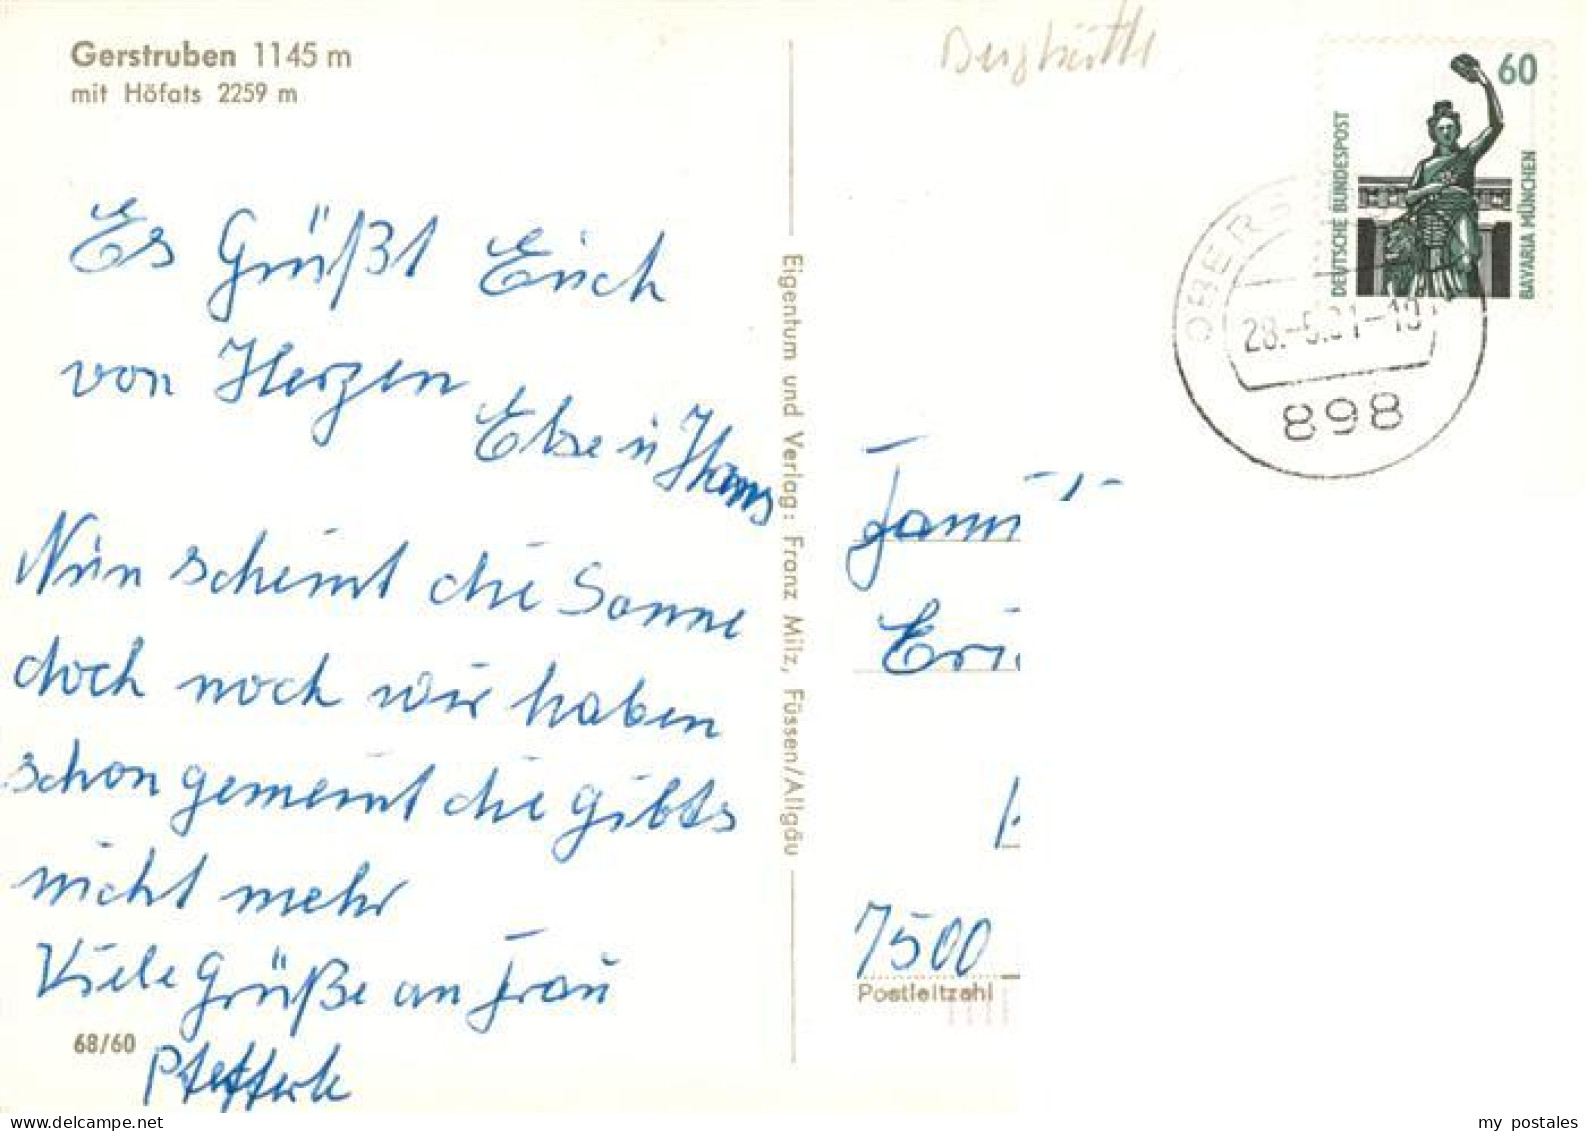 Gerstruben 1145 m
mit Höfats 2259 m
Es Grüßt Euch
von Herzen
Else u Hans
Nun scheint die Sonne
doch noch wir haben
schon gemeint die gibts
nicht mehr
Viele Grüße an Frau
Pfefferle
68/60
Eigentum und Verlag: Franz Milz, Füssen/Allgäu
60
DEUTSCHE BUNDESPOST
BAVARIA MÜNCHEN
898
7500
Postleitzahl
my postales